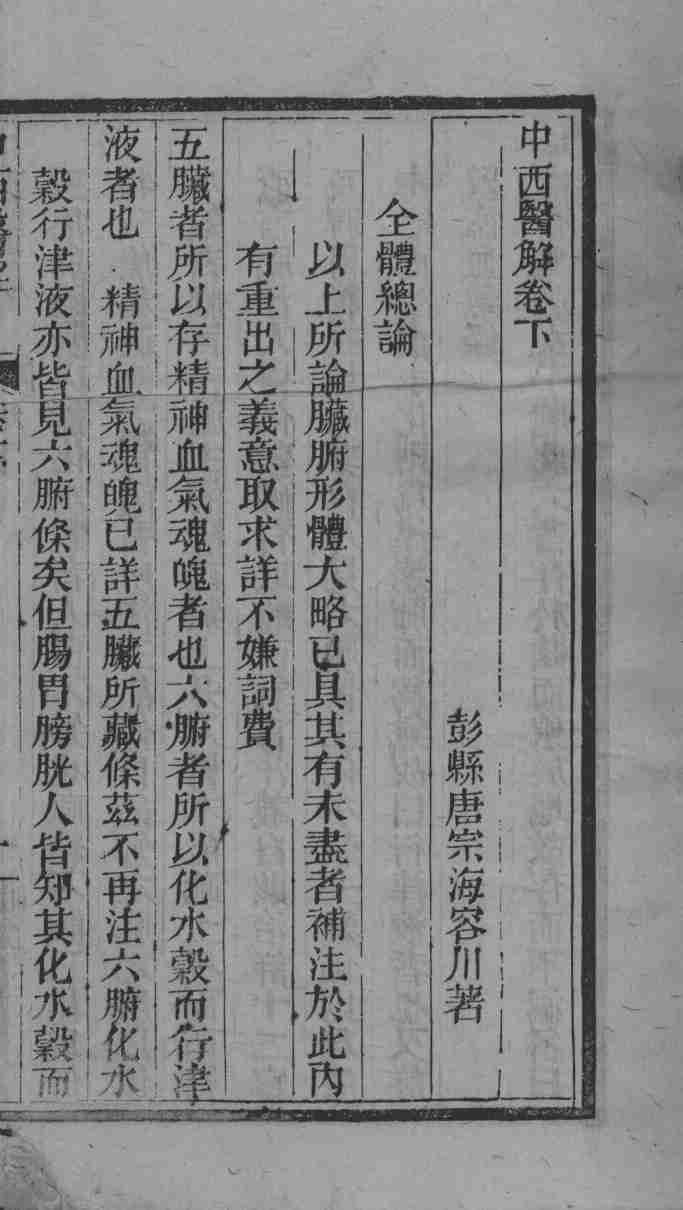 中西醫解卷下
彭縣唐宗海容川著
全體總論
以上所論臟腑形體大略已具其有未盡者補注於此內
有重出之義意取求詳不嫌詞費
五臟者所以存精神血氣魂魄者也六腑者所以化水穀而行津
液者也 精神血氣魂魄已詳五臟所藏條茲不再注六腑化水
穀行津液亦皆見六腑條矣但腸胃膀胱人皆知其化水穀而